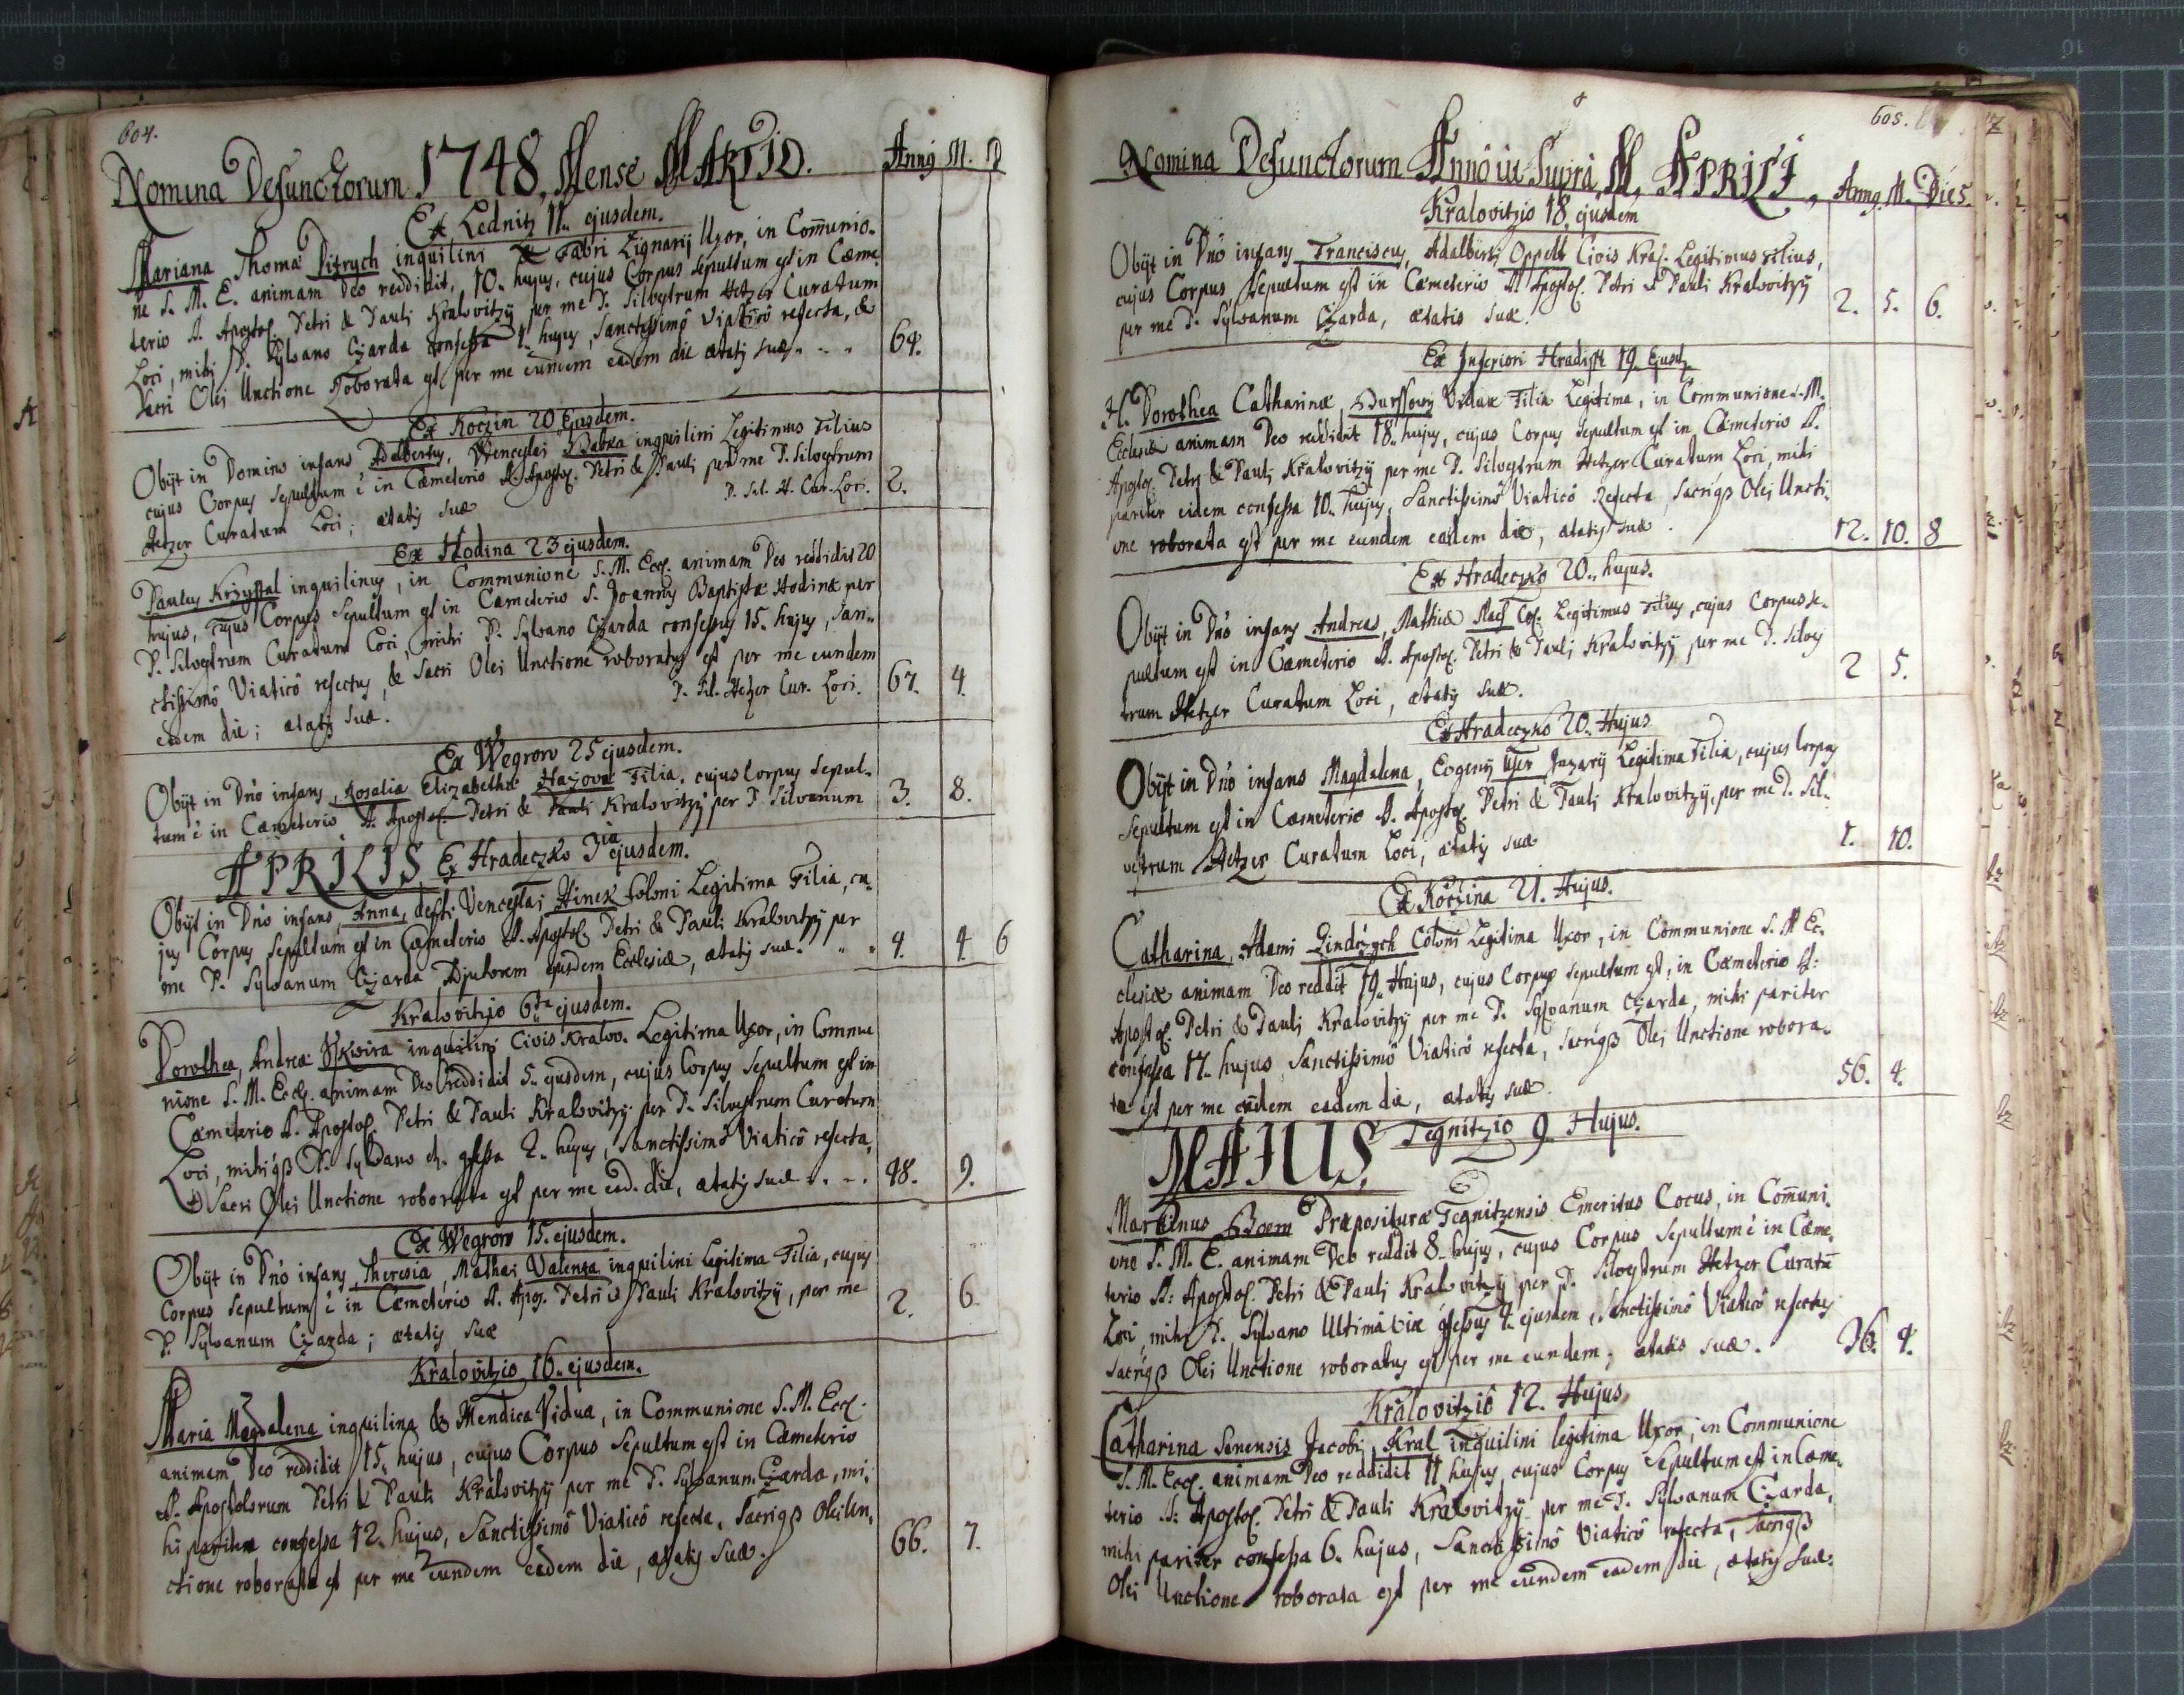 604.
Nomina Defunctorum 1748, Mense MARTIO. Anny M. D
Ex Lednitz 11. ejusdem.
Mariana Thomæ Ditrych inquilini & Fabri Lignarij Uxor, in Com̄unio-
ne S. M. E. animam Deo reddidit, 10. hujus, cujus Corpus sepultum est in Cæme-
terio S. Apostol. Petri & Pauli Kralovitzÿ per me P. Silvestrum Hetzer Curatum
Loci, mihi P. Sylvano Czarda confessa hujus, Sanctissimô Viaticô refecta, &
Sacri Olei Unctione roborata est per me eundem eadem die ætatis suæ. 64.
Ex Koczin 20 Ejusdem.
Obijt in Domino infans Adalbertus, Wenceslai Babka inquilini Legitimus Filius
cujus Corpus sepultum ē in Cæmeterio S. Apostol. Petri & Pauli per me P. Silvestrum
Hetzer Curatum Loci; ætatis suæ P. Sil. H. Cur. Loci. 2.
Ex Hodina 23 ejusdem.
Paulus Krzysstal inquilinus, in Communione S. M. Eccl. animam Deo reddidit 20
hujus, cujus Corpus Sepultum est in Cæmeterio S. Joannis Baptistæ Hodinæ per
P. Silvestrum Curatum Loci, mihi P. Sylvano Czarda confessus 15. hujus, San-
ctissimô Viaticô refectus, & Sacri Olei Unctione roboratus est per me eundem
eadem die; ætatis suæ. P. Sil. Hetzer Cur. Loci. 67. 4.
Ex Wegrow 25 ejusdem.
Obijt in Dn̄o infans, Rosalia Elizabethæ Filia, cujus Corpus Sepul-
tum ē in Cæmeterio S. Apostol. Petri & Pauli Kralovitzÿ per P. Silvanum 3. 8.
APRILIS Ex Hradeczko 3ia ejusdem.
Obijt in Dn̄o infans, Anna, defti Venceslai Hinek Coloni Legitima Filia, cu-
jus Corpus Sepultum est in Cæmeterio S. Apostol. Petri & Pauli Kralovitzÿ per
me P. Sylvanum Czarda Adjutorem ejusdem Ecclesiæ, ætatis suæ. 4. 4. 6
Kralovitzio 6ta ejusdem.
Dorothea, Andreæ Sskwira inquilini Civis Kralov. Legitima Uxor, in Commu
nione S. M. Eccl. animam Deo reddidit 5. ejusdem, cujus Corpus Sepultum est in
Cæmeterio S. Apostol. Petri & Pauli Kralovitzÿ per P. Silvestrum Curatum
Loci, mihi P. Sylvano 2. hujus, Sanctissimô Viaticô refecta,
& Sacri Olei Unctione roborata est per me ead. die, ætatis suæ. 48. 9.
Ex Wegrow 15. ejusdem.
Obijt in Dn̄o infans, Theresia, Mathæi Valenta inquilini Legitima Filia, cujus
Corpus Sepultum ē in Cæmeterio S. Apos. Petri & Pauli Kralovitzÿ, per me
P. Sylvanum Czarda; ætatis suæ 2. 6.
Kralovitzio 16. ejusdem.
Maria Magdalena inquilina & Mendica Vidua, in Communione S. M. Eccl.
animam Deo reddidit 15. hujus, cujus Corpus Sepultum est in Cæmeterio
S. Apostolorum Petri & Pauli Kralovitzÿ per me P. Sylvanum Czarda, mi-
hi pariter confessa 12. hujus, Sanctissimô Viaticô refecta, Sacriqß Olei Un-
ctione roborata est per me eundem eadem die, ætatis suæ. 66. 7.
605.
Nomina Defunctorum Annô ut Supra, M. APRILI, Anny. M. Dies.
Kralovitzio 18. ejusdem
Obijt in Dn̄o infans Franciscus, Adalberti Oppelt Civis Kral. Legitimus Filius,
cujus Corpus Sepultum est in Cæmeterio S. Apostol. Petri & Pauli Kralovitzÿ
per me P. Sylvanum Czarda, ætatis suæ. 2. 5. 6.
Ex Inferiori Hradisst 19. Ejusd.
H. Dorothea Catharinæ, Viduæ Filia Legitima, in Communione S. M.
Ecclesiæ animam Deo reddidit 18. hujus, cujus Corpus Sepultum est in Cæmeterio S.
Apostol. Petri & Pauli Kralovitzÿ per me P. Silvestrum Hetzer Curatum Loci, mihi
pariter eidem confessa 10. hujus, Sanctissimô Viaticô Refecta, Sacriqß Olei Uncti-
one roborata est per me eundem eadem die, ætatis suæ. 12. 10. 8
Ex Hradeczko 20. hujus.
Obijt in Dn̄o infans Andreas, Mathiæ Col. Legitimus Filius, cujus Corpus Se-
pultum est in Cæmeterio S. Apostol. Petri & Pauli Kralovitzÿ per me P. Silves
trum Hetzer Curatum Loci, ætatis suæ. 2 5.
Ex Hradeczko 20. Hujus
Obijt in Dn̄o infans Magdalena, Evgenij Legitima Filia, cujus Corpus
Sepultum est in Cæmeterio S. Apostol. Petri & Pauli Kralovitzÿ, per me P. Sil-
vestrum Hetzer Curatum Loci, ætatis suæ 1. 10.
Ex Koczina 21. Hujus.
Catharina, Adami Gindrzych Coloni Legitima Uxor, in Communione S. M Ec-
clesiæ animam Deo reddit 19. Hujus, cujus Corpus Sepultum est, in Cæmeterio S:
Apostol. Petri & Pauli Kralovitzÿ per me P. Sylvanum Czarda, mihi pariter
confessa 17. hujus, Sanctissimô Viaticô refecta, Sacriqß Olei Unctione robora-
ta est per me eūdem eadem die, ætatis suæ. 56. 4.
MAJUS, Tegnitzio 9. Hujus.
Martinus Boem Præposituræ Tegnitzensis Emeritus Cocus, in Com̄uni-
one S. M. E. animam Deo reddit 8. hujus, cujus Corpus Sepultum ē in Cæme-
terio S: Apostol. Petri & Pauli Kralovitzÿ per P. Silvestrum Hetzer Curatū
Loci, mihi P. Sylvano Ultima vice 7. ejusdem, Sanctissimô Viaticô refectus
Sacriqß Olei Unctione roboratus est per me eundem; ætatis suæ. 36. 4.
Kralovitziô 12. Hujus,
Catharina Senensis Jacobi Kral inquilini legitima Uxor, in Communione
S. M. Eccl. animam Deo reddidit 11 hujus, cujus Corpus Sepultum est in Cæme-
terio S: Apostol. Petri & Pauli Kralovitzÿ per me P. Sylvanum Czarda,
mihi pariter confessa 6. hujus, Sanctissimô Viaticô refecta, Sacriqß
Olei Unctione roborata est per me eundem eadem die, ætatis suæ.